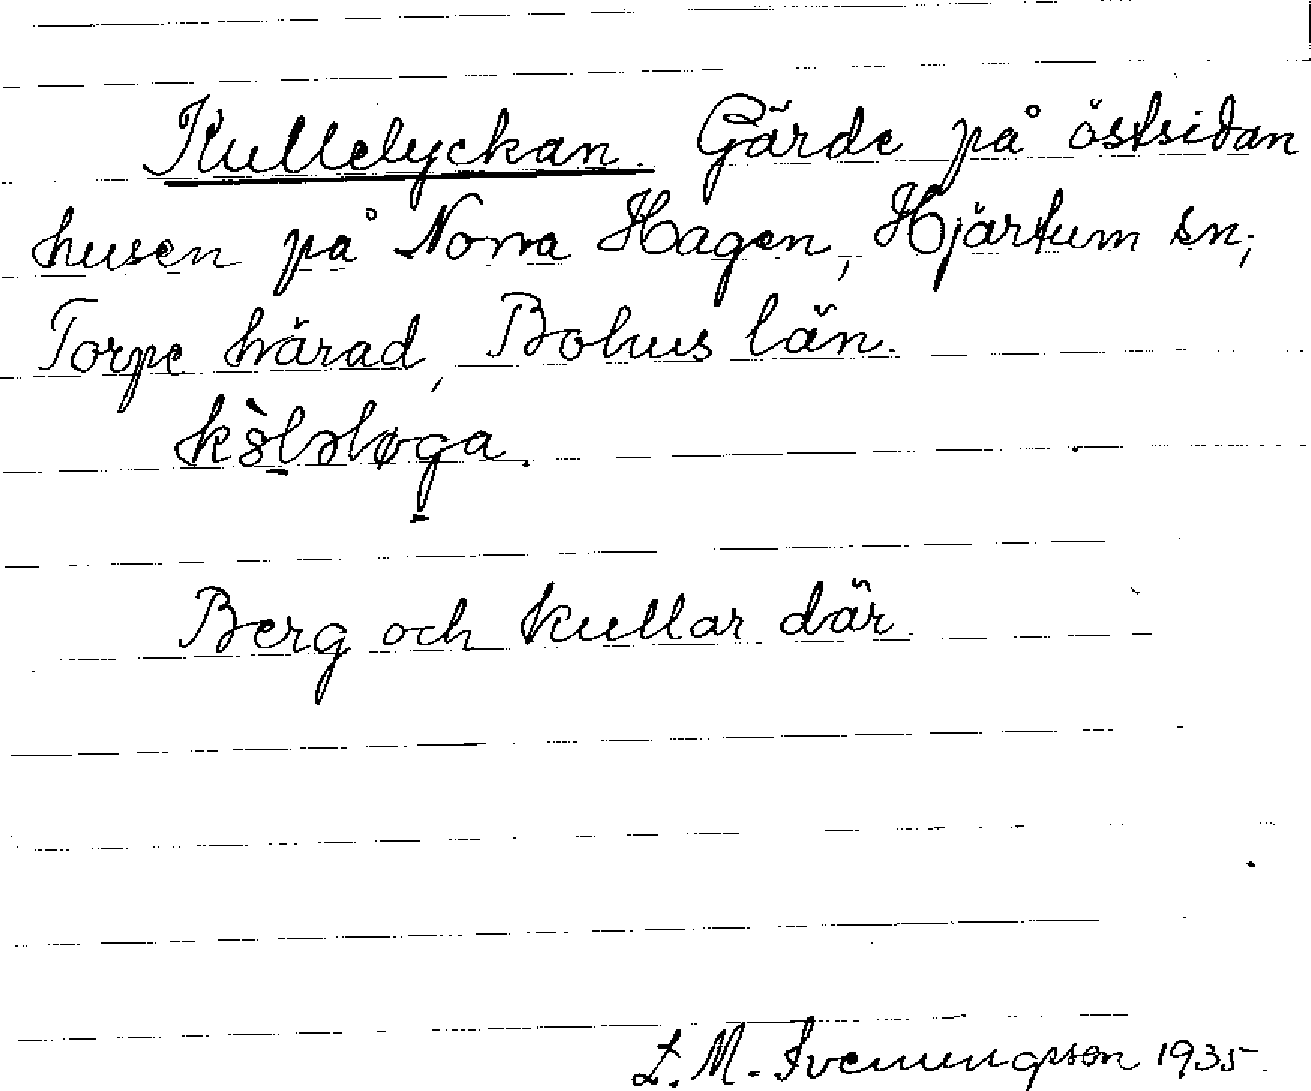 Kullelyckan. Gärde på östsidan
husen på Norra Hagen, Hjärtum sn,
Torpe härad, Bohus län.
Berg och kullar där
L. M. Svenungsson 1935